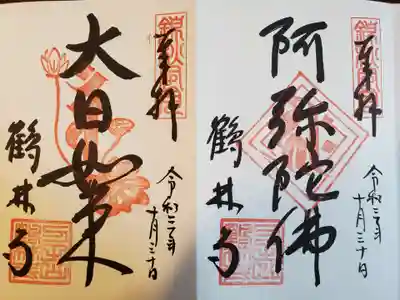 奉拝
大日如来
鶴林寺
令和二年
十月三十日
奉拝
阿弥陀佛
鶴林寺
令和二年
十月三十日